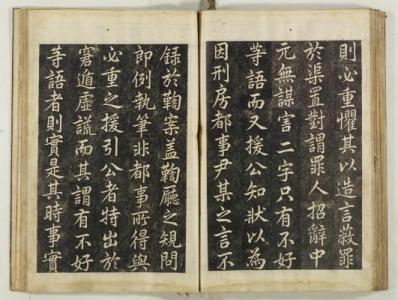 則必重懼其以造言蔽罪
於渠置對謂罪人招辭中
元無謀害二字只有不好
等語而又援公知狀以為
因刑房都事尹某之言不
録於鞫案盖鞫廳之規問
即例執筆非都事所得與
必重之援引公者特出於
窘遁虛謊而其謂有不好
等語者則實是其時事實